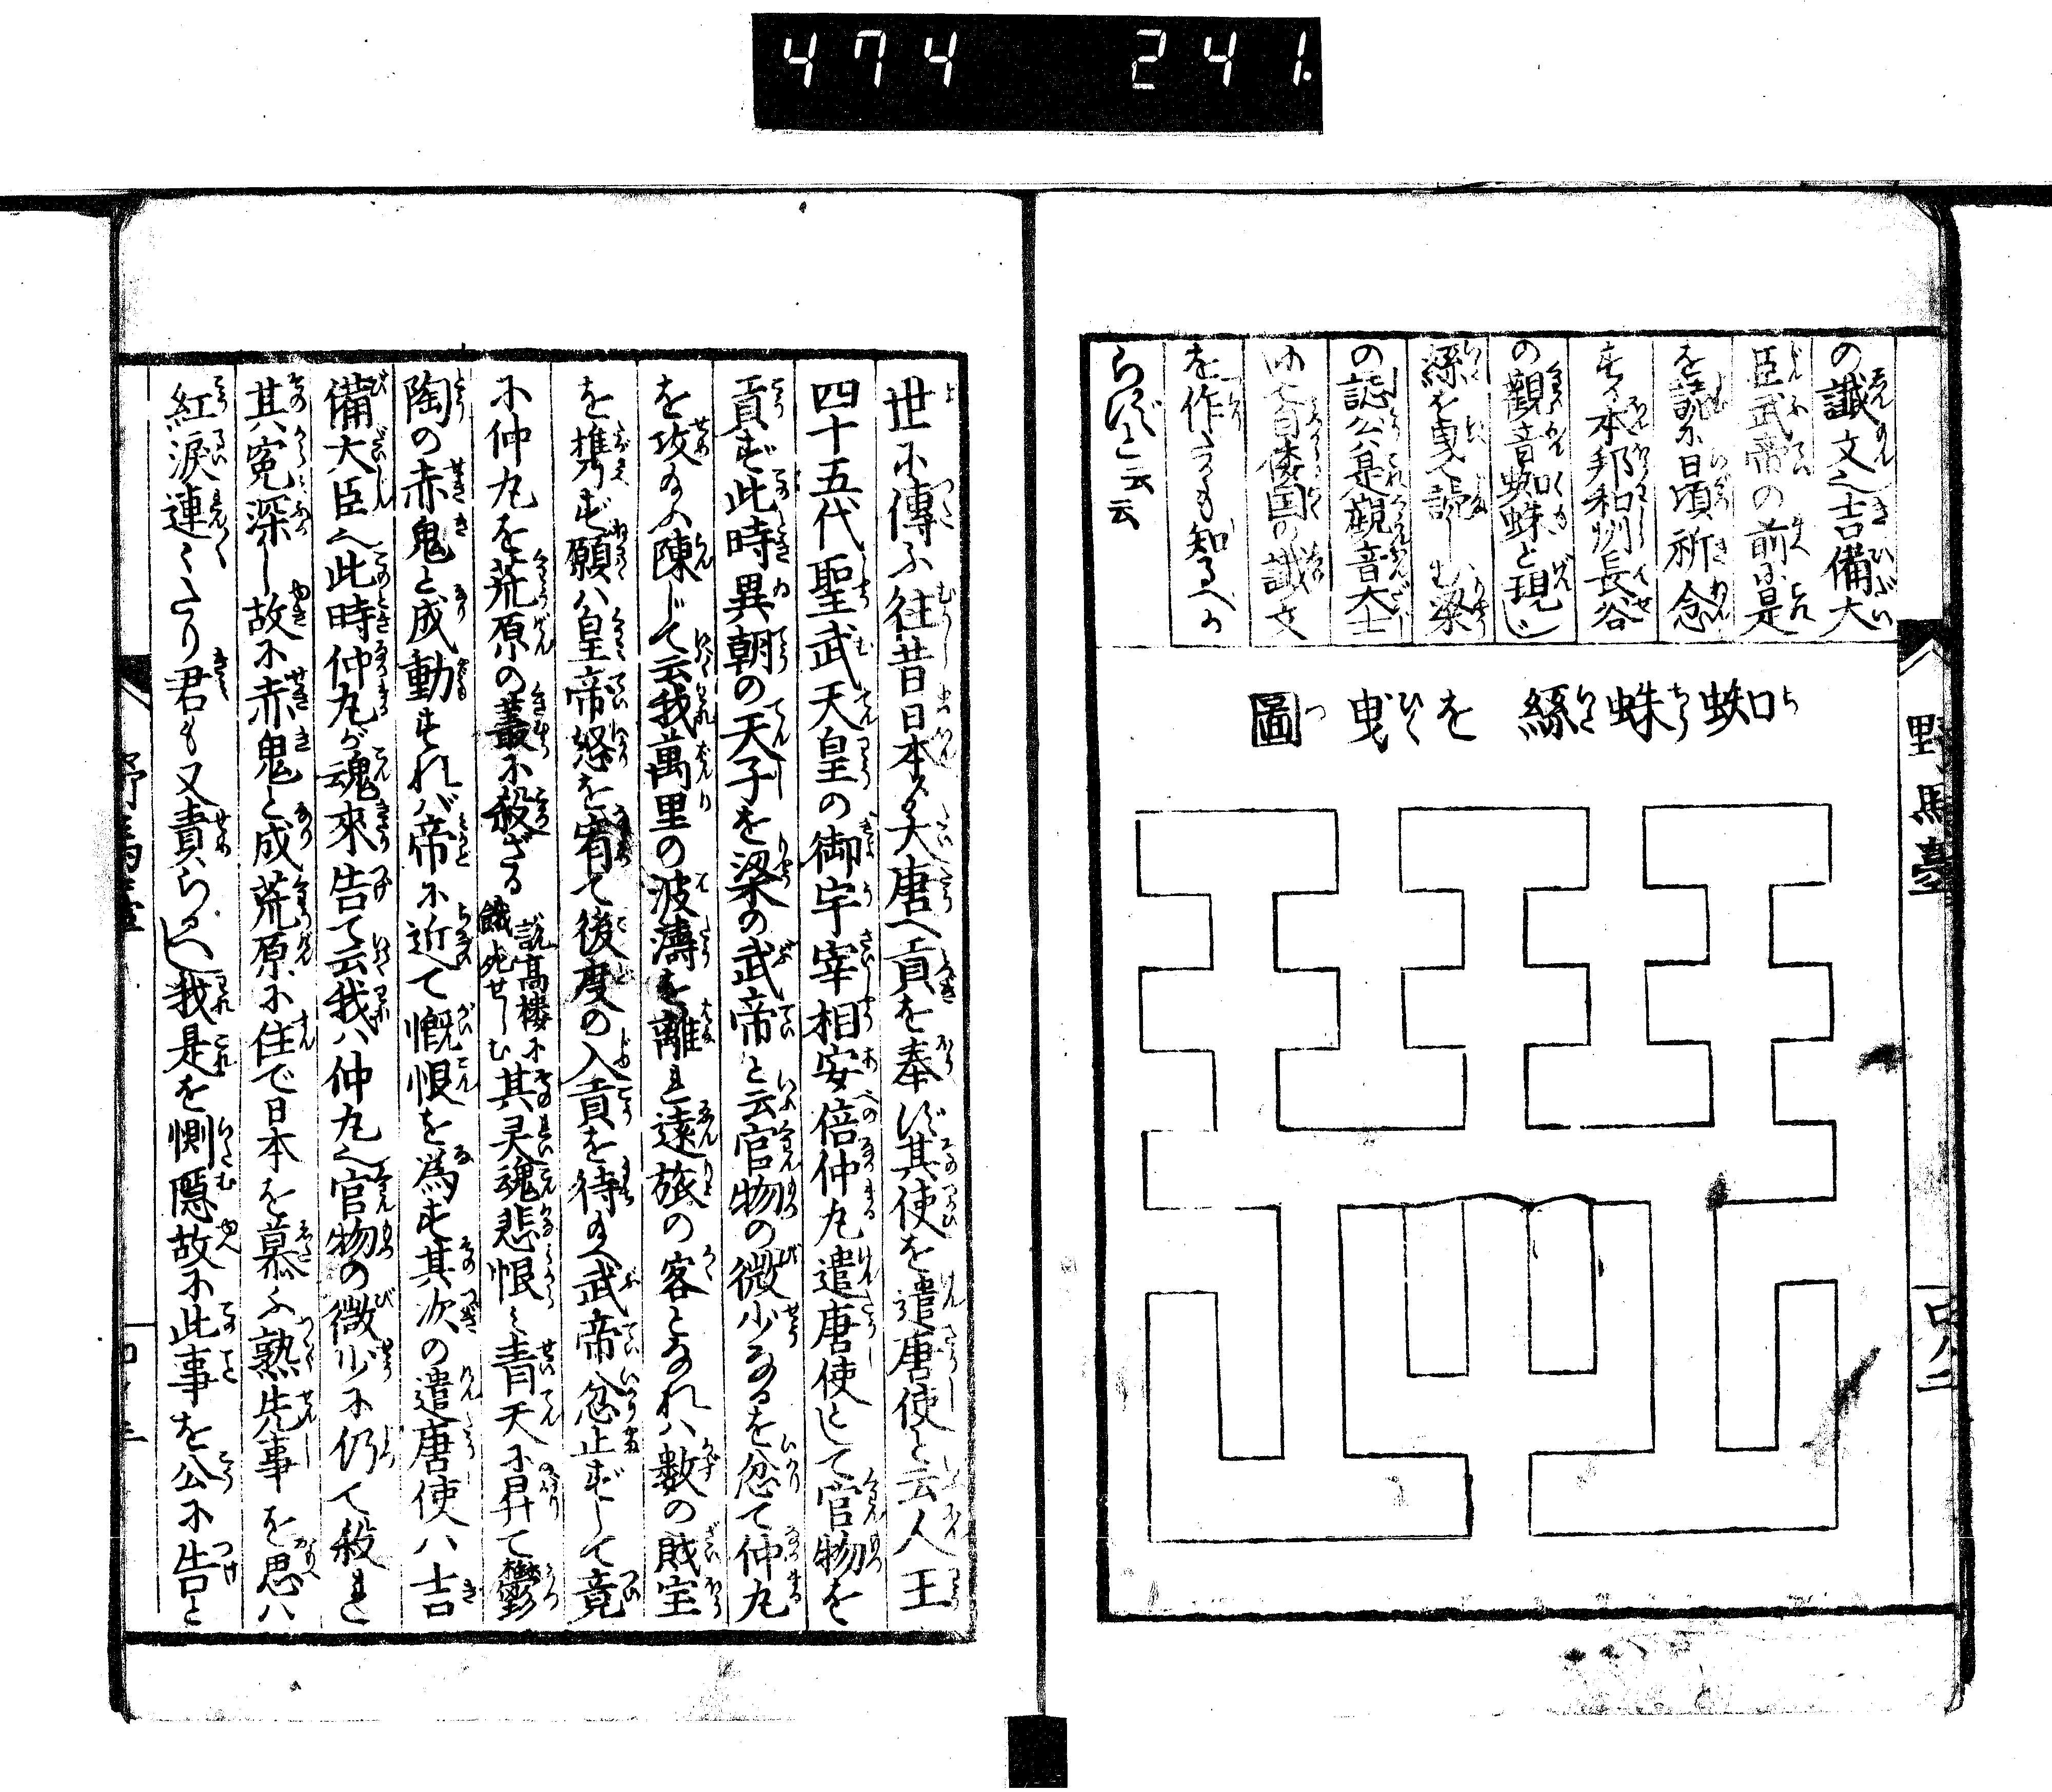 474 241.
の讖文也吉備大
臣武帝の前に是
を読に日頃祈念
する本邦和州長谷
の観音蜘蛛と現じ
絲を曳て読しむ梁
の誌公は是観音大士
倭国の讖文
を作さるも知るべか
らず と云云
野馬臺
蜘蛛絲を曳圖
世に傳ふ往昔日本より大唐へ貢を奉る其使を遣唐使と云人王
四十五代聖武天皇の御宇宰相安倍仲丸遣唐使として官物を
貢ず此時異朝の天子を梁の武帝と云官物の微少なるを忿て仲丸
を攻給ふ陳じて云我萬里の波濤を離れ遠旅の客となれハ数の財宝
を携ず願ハ皇帝怒を宥て後度の入貢を待給へ武帝忿止ずして竟
に仲丸を荒原の叢に殺ざる 説高楼に餓死せしむ 其灵魂悲恨ミ青天に昇て鬱
陶の赤鬼と成動すれバ帝に近て慨恨を為す其次の遣唐使ハ吉
備大臣也此時仲丸が魂來告て云我ハ仲丸也官物の微少に仍て殺れ
其寃深し故に赤鬼と成荒原に住で日本を慕ふ熟先事を思ハ
紅涙連ゝたり君も又責らるべし我是を惻隠故に此事を公に告と
野馬臺